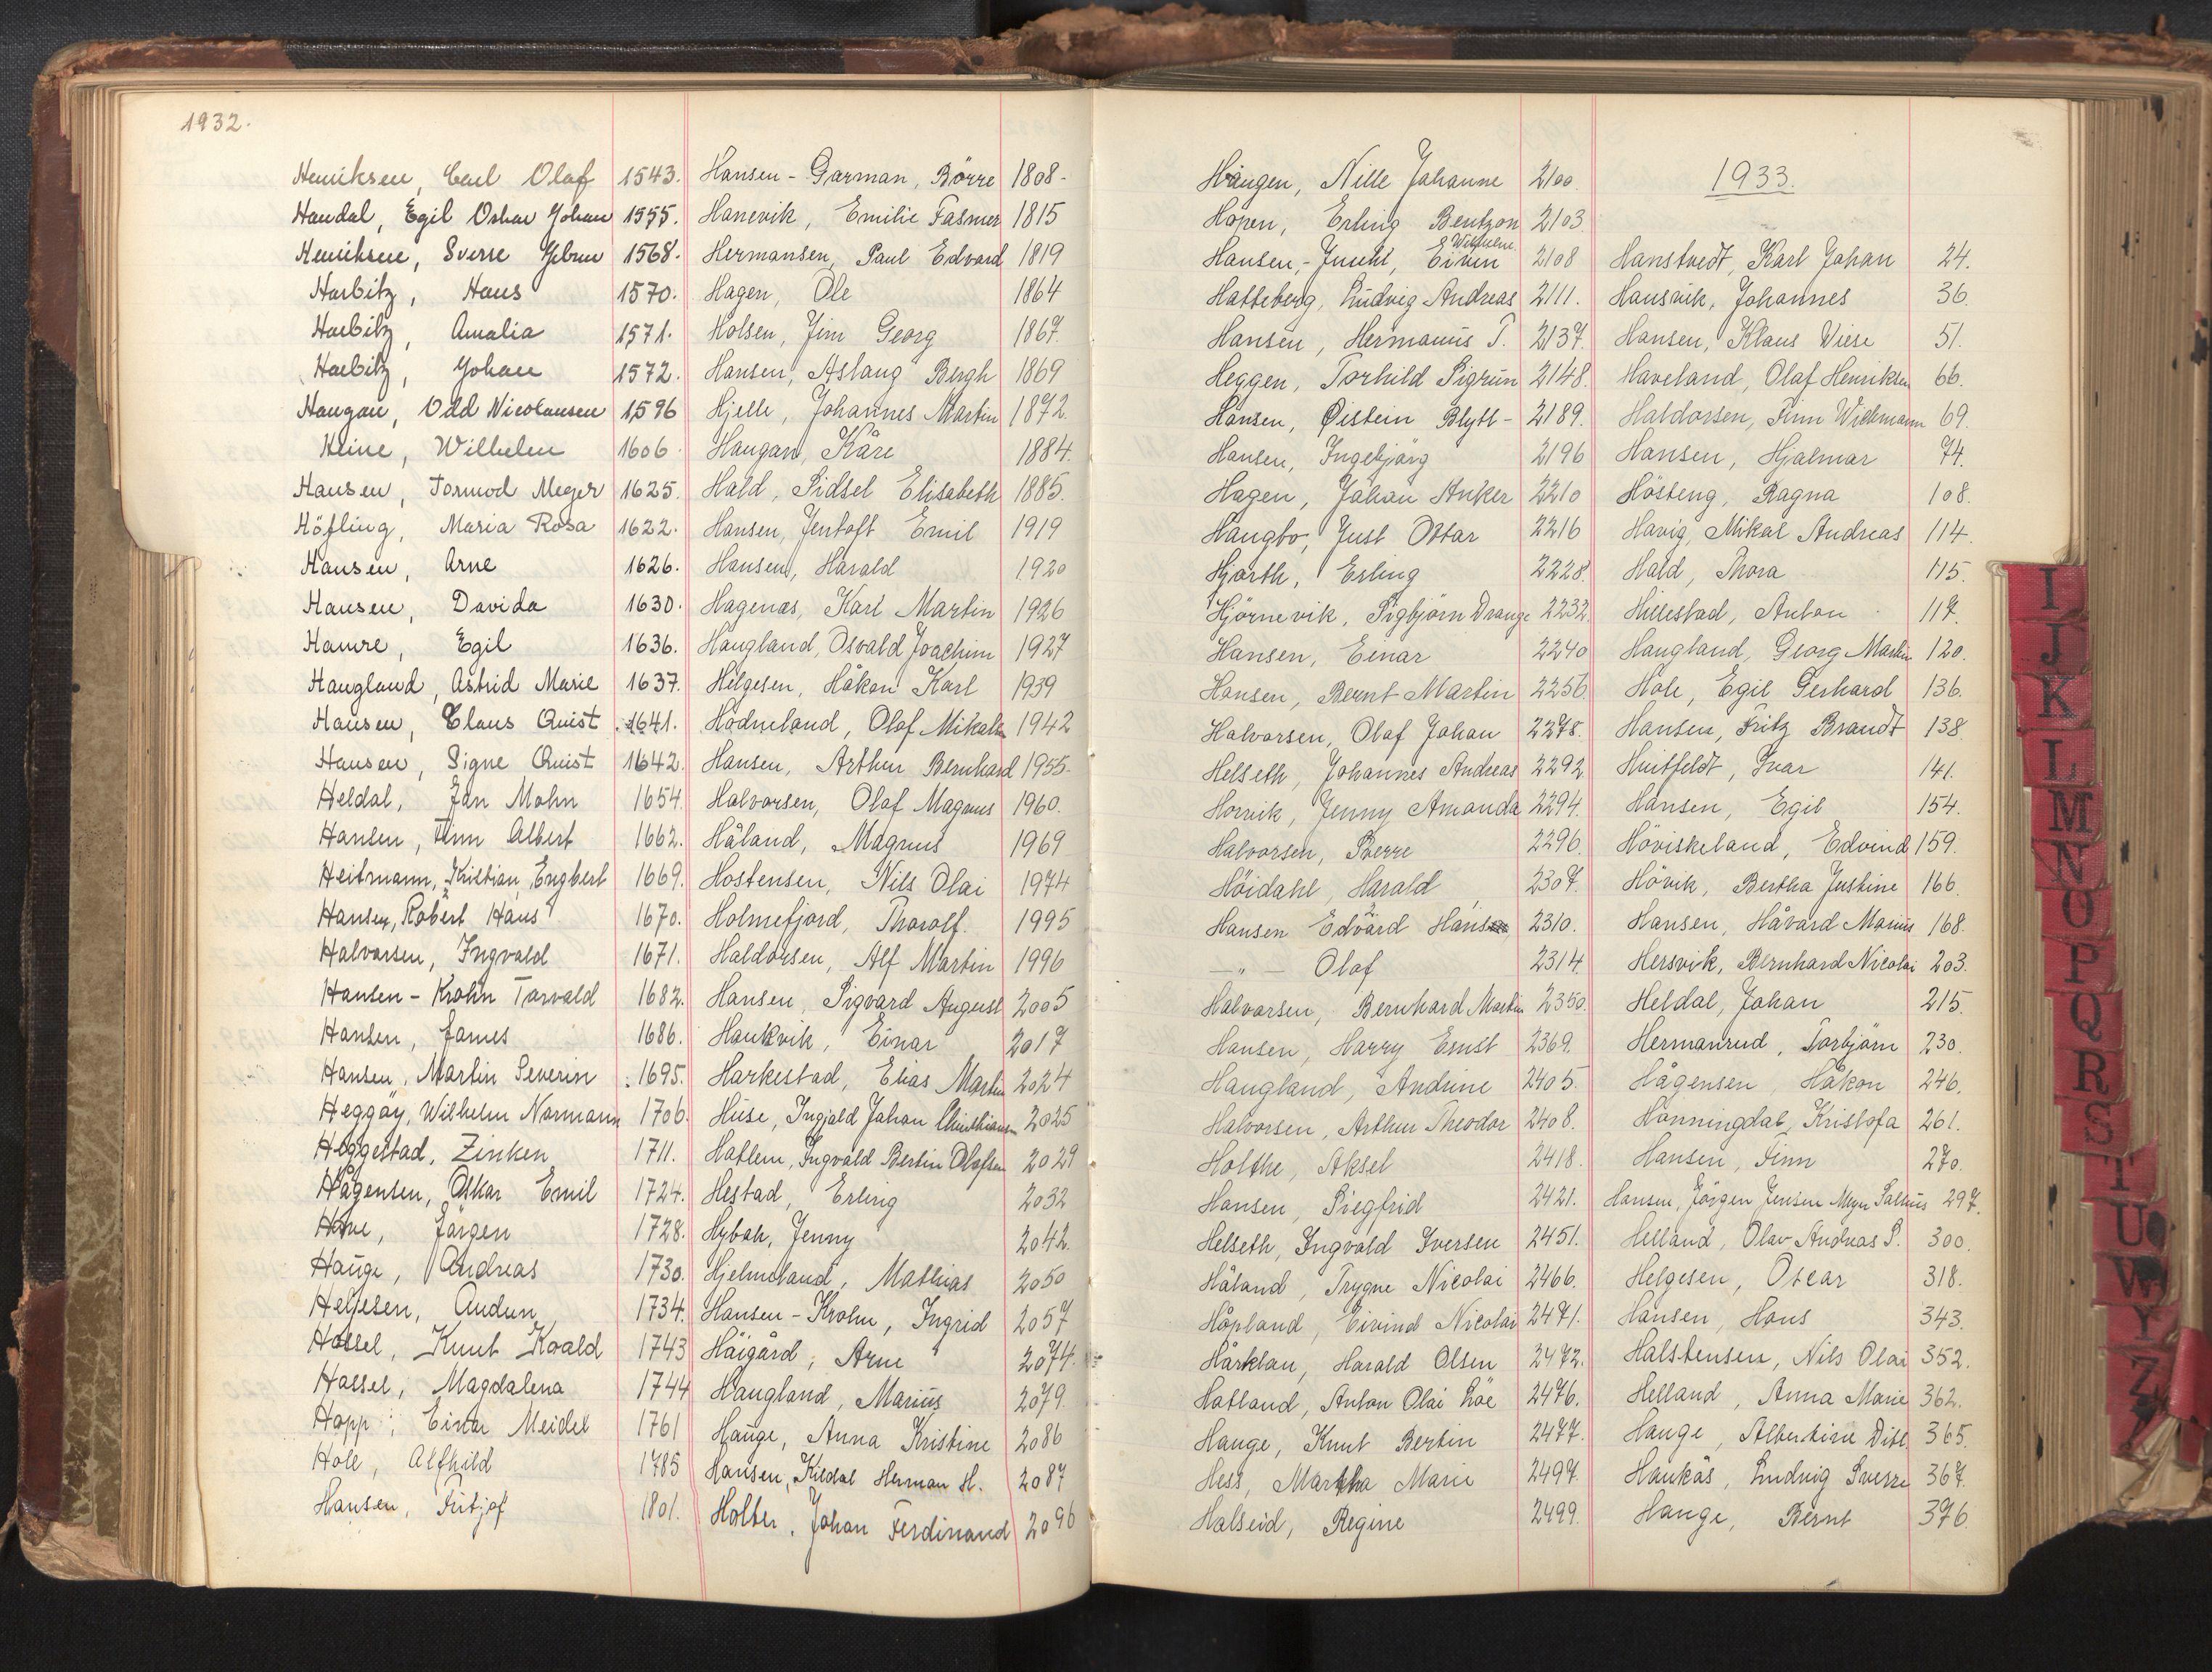 1932.
Henriksen, Carl Olaf 1543.
Haudal, Egil Oskar Johan 1555.
Henriksen, Sverre 1568.
Harbitz, Hans 1570.
Harbitz, Amalia 1571.
Harbitz, Johan 1572.
Haugan, Odd Nicolausen 1596
Heine, Wilhelm 1606
Hansen, Tormod Meyer 1625.
Höfling, Maria Rosa 1622.
Hansen, Arne 1626.
Hansen, Davida 1630.
Hamre, Egil 1636.
Haugland, Astrid Marie 1637.
Hansen, Claus Quist 1641.
Hansen, Signe Quist 1642.
Heldal, Jan Mohn 1654.
Hansen, Finn Albert 1662.
Heitmann, Kristian Engbert 1669.
Hansen, Robert Hans 1670.
Halvorsen, Ingvald 1671.
Hansen-Krohn Torvald 1682.
Hansen, James 1686.
Hansen, Martin Severin 1695.
Heggöy, Wilhelm Normann 1706.
Heggestad, Zinken 1711.
Hågensen, Oskar Emil 1724.
Hove, Jörgen 1728.
Hauge, Andreas 1730.
Helgesen, Audun 1734.
Hassel, Knut Roald 1743
Hassel, Magdalena 1744
Hopp, Einar Meidel 1761
Hole, Alfhild 1785
Hansen, Fritjof 1801.
Hansen-Garman, Börre 1808-
Hanevik, Emilie Fasmer 1815
Hermansen, Paul Edvard 1819
Hagen, Ole 1864
Holsen, Jim Georg 1867.
Hansen, Aslaug Bergh 1869
Hjelle, Johannes Martin 1872.
Haugan, Kåre 1884.
Hald, Sidsel Elisabeth 1885.
Hansen, Jentoft Emil 1919
Hansen, Harald 1920
Hagenæs, Karl Martin 1926
Haugland, Osvald Joachim 1927
Helgesen, Håkon Karl 1939
Hodneland, Olaf Mikalsn 1942
Hansen, Arthur Bernhard 1955-
Halvorsen, Olaf Magnus 1960.
Håland, Magnus 1969
Hostensen, Nils Olai 1974
Holmefjord, Thorolf. 1995
Haldorsen, Alf Martin 1996
Hansen, Sigvard August 2005
Haukvik, Einar 2017
Harkestad, Elias Martin 2024
Huse, Ingjald Johan Christiansn 2025
Hatlem, Ingvald Bertin Olafsen 2029
Hestad, Erling 2032
Hybak, Jenny 2042.
Hjelmeland, Mathias 2050
Hansen-Krohn, Ingrid 2057
Håigård, Arne 2074.
Haugland, Marius 2079.
Hauge, Anna Kristine 2086
Hansen, Kildal Herman H. 2087
Holter, Johan Ferdinand 2096
Haugen, Nille Johanne 2100.
Hopen, Erling Bentzon 2103.
Wilhelm
Hansen,-Juuhl, Eivin 2108
Hatteberg, Ludvig Andreas 2111.
Hansen, Hermanus T. 2137.
Heggen, Torhild Sigrun 2148.
Hansen, Øistein Blytt- 2189.
Hansen, Ingebjörg 2196
Hagen, Johan Anker 2210
Haugbo, Just Ottar 2216
Hjorth, Erling 2228.
Hjörnevik, Sigbjörn Drange 2232.
Hansen, Einar 2240
Hansen, Bernt Martin 2256.
Halvorsen, Olaf Johan 2278.
Helseth, Johannes Andreas 2292.
Horvik, Jenny Amanda 2294.
Halvorsen, Sverre 2296.
Höidahl, Harald 2307.
Hansen Edvard Hans 2310.
" - Olaf 2314.
Halvorsen, Bernhard Martin 2350.
Hansen, Harry Ernst 2369.
Haugland, Andrine 2405.
Halvorsen, Arthur Theodor 2408.
Holthe, Aksel 2418.
Hansen, Siegfrid 2421.
Helseth, Ingvald Iversen 2451.
Håland, Trygve Nicolai 2466.
Håpland, Eivind Nicolai 2471.
Hårklau, Harald Olsen 2472.
Hatland, Anton Olai Löe 2476.
Hauge, Knut Bertin 2477.
Hess, Martha Marie 2497.
Halseid, Regine 2499.
1933.
Hanstvedt, Karl Johan 24.
Hausvik, Johannes 36.
Hansen, Klaus Wiese 51.
Haveland, Olaf Henriksen 66.
Haldorsen, Finn Wickmann 69.
Hansen, Hjalmar 74.
Hösteng, Ragna 108.
Havig, Mikal Andreas 114.
Hald, Thora 115.
Hillestad, Anton 117.
Haugland, Georg Martin 120.
Hole, Egil Gerhard 136.
Hansen, Fritz Brandt 138.
Huitfeldt, Ivar 141.
Hansen, Egil 154.
Höviskeland, Edvind 159.
Hövik, Bertha Justine 166.
Hansen, Håvard Marius 168.
Hersvik, Bernhard Nicolai 203.
Heldal, Johan 215.
Hermanrud, Torbjörn 230.
Hågensen Håkon 246.
Honningdal, Kristofa 261.
Hansen, Finn 270.
Hansen, Jörgen Jensen Meyer 297.
Helland, Olav Andreas S. 300.
Helgesen, Oscar 318.
Hansen, Hans 343.
Halstensen, Nils Olai 352.
Helland, Anna Marie 362.
Hauge, Albertine Ditl. 365.
Haukås, Ludvig Sverre 367.
Hauge, Bernt 376.
I
J
K
L
M
N
O
P
Q
R
S
T
U
W
Y
Z